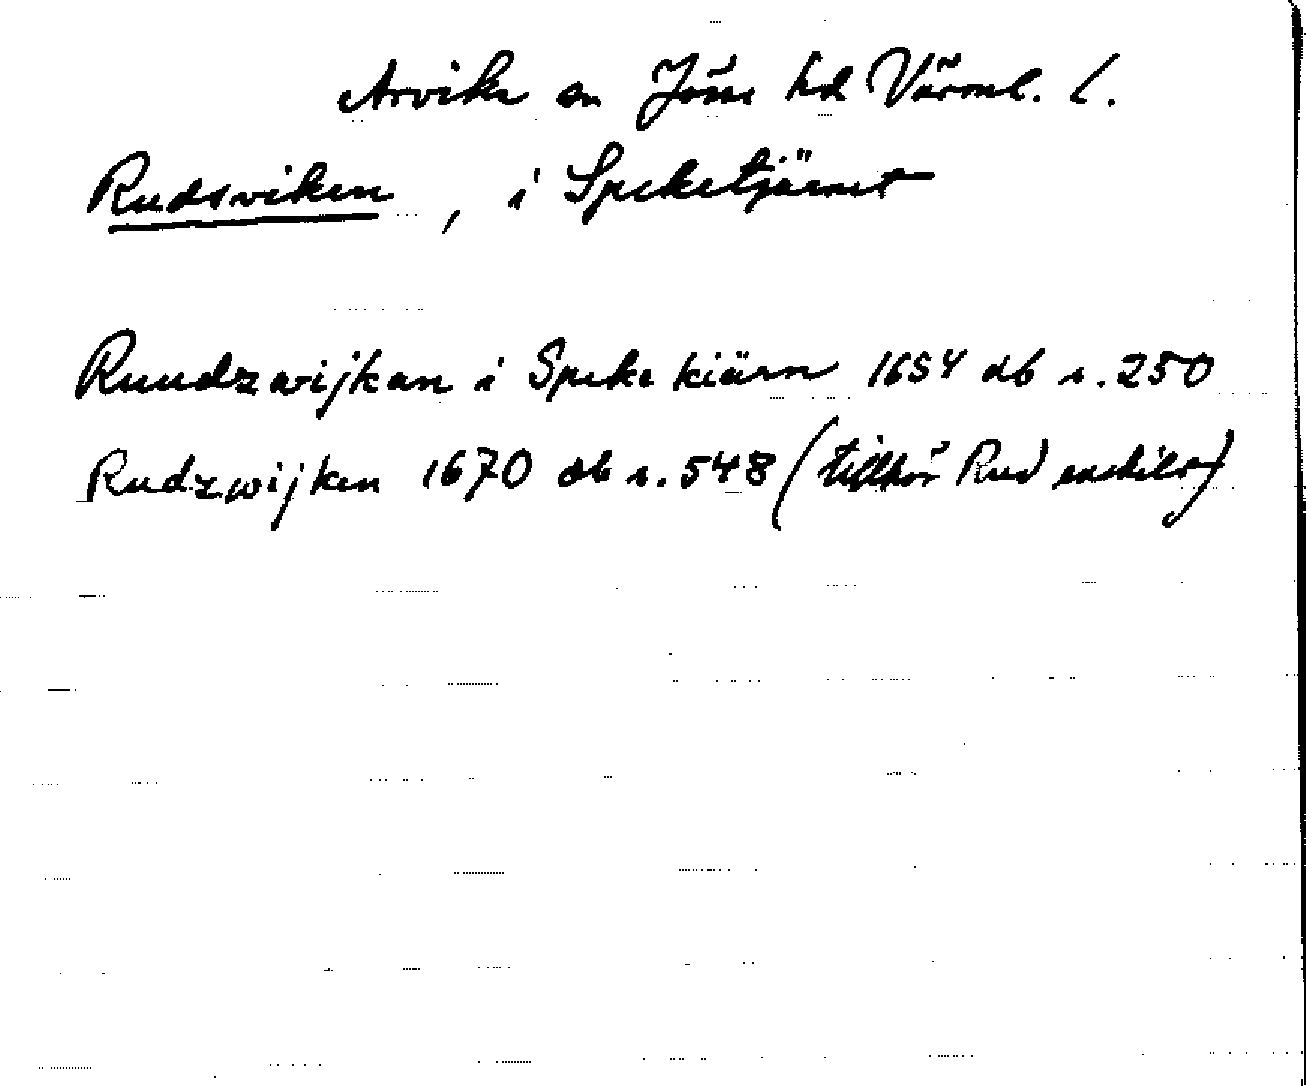 Arvika sn Jösse hd Värml. l.
Rudsviken, i Speketjärnet
Ruudzwijkan i Speke kiärn 1654 db s. 250
Rudzwijken 1670 db s. 548 (tillhör Rud enskilt)